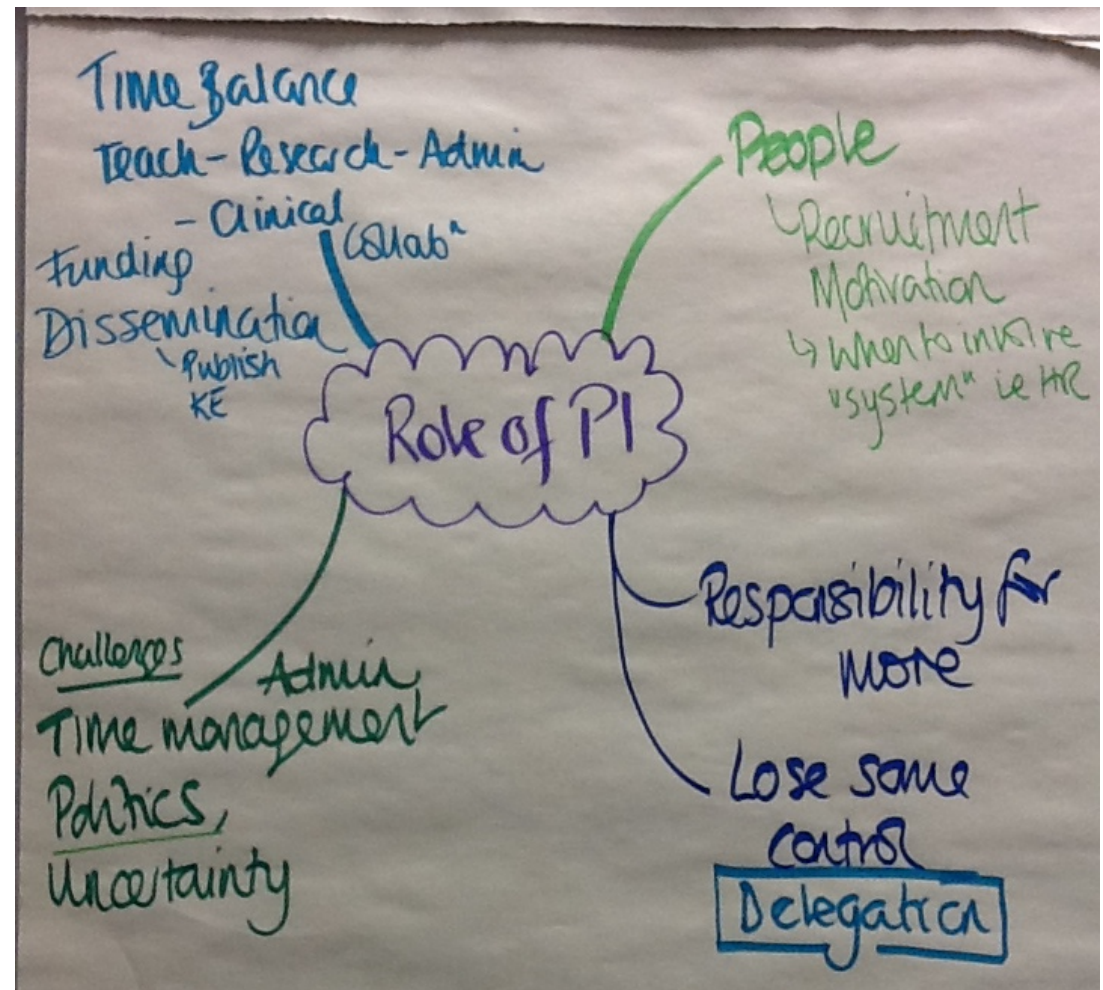 Time Balance
Teach - Research - Admin
- Clinical
Collabⁿ
Funding
Dissemination
Publish
KE
People
Recruitment
Motivation
↳ When to involve
"system" ie HR
Role of PI
Challenges
Admin,
Time management
Politics,
Uncertainty
Responsibility for
more
Lose some
control
Delegation